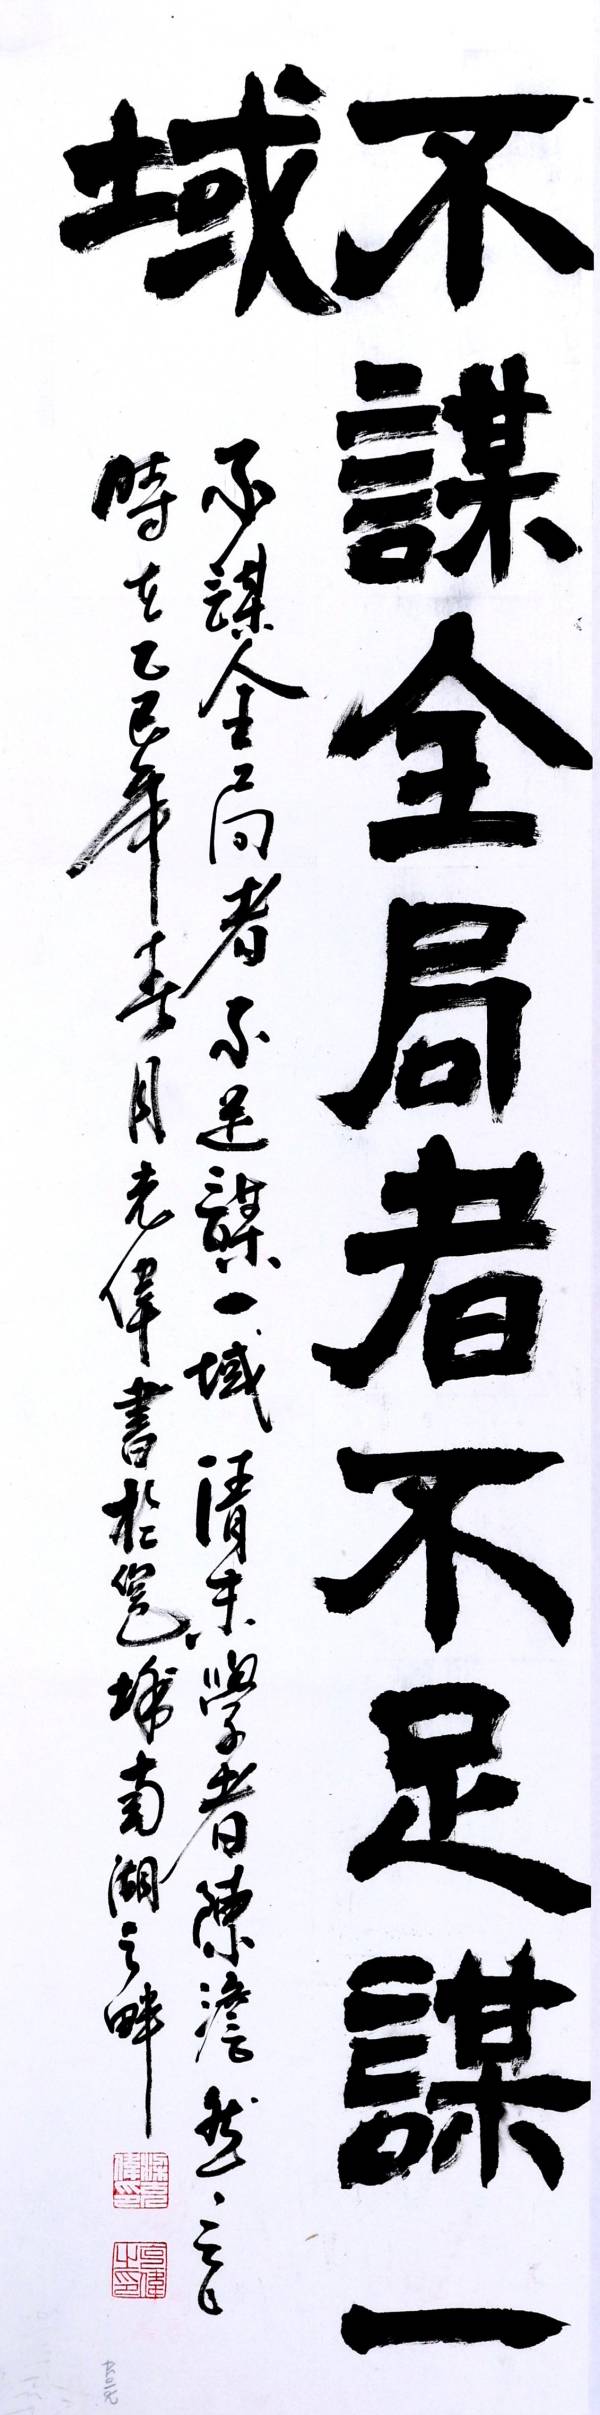 不謀全局者不足謀一
域
不謀全局者不足謀一域 清末學者陳澹然之言也
時在乙巳年春月克偉書於邕城南湖之畔